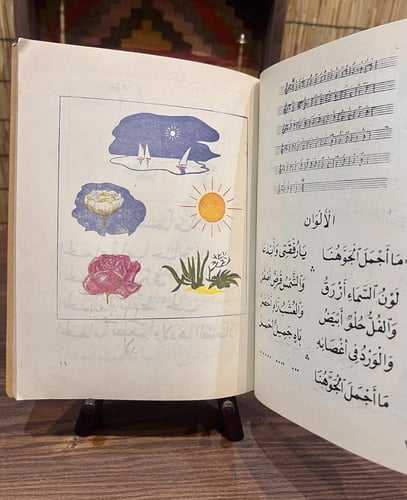 الأَلْوَان
مَا أَجْمَلَ الْجَوَّ هُنَا يَا رِفْقَتِي وَأَبْدَعَا
لَوْنُ السَّمَاءِ أَزْرَقُ وَالشَّمْسُ قُرْصٌ أَصْفَرُ
وَالْفُلُّ حُلْوٌ أَبْيَضُ وَالْعُشْبُ زَاهٍ
وَالْوَرْدُ فِي أَغْصَانِهِ بَاهٍ جَمِيلٌ أَحْمَرُ
مَا أَجْمَلَ الْجَوَّ هُنَا ... ... ...
١١